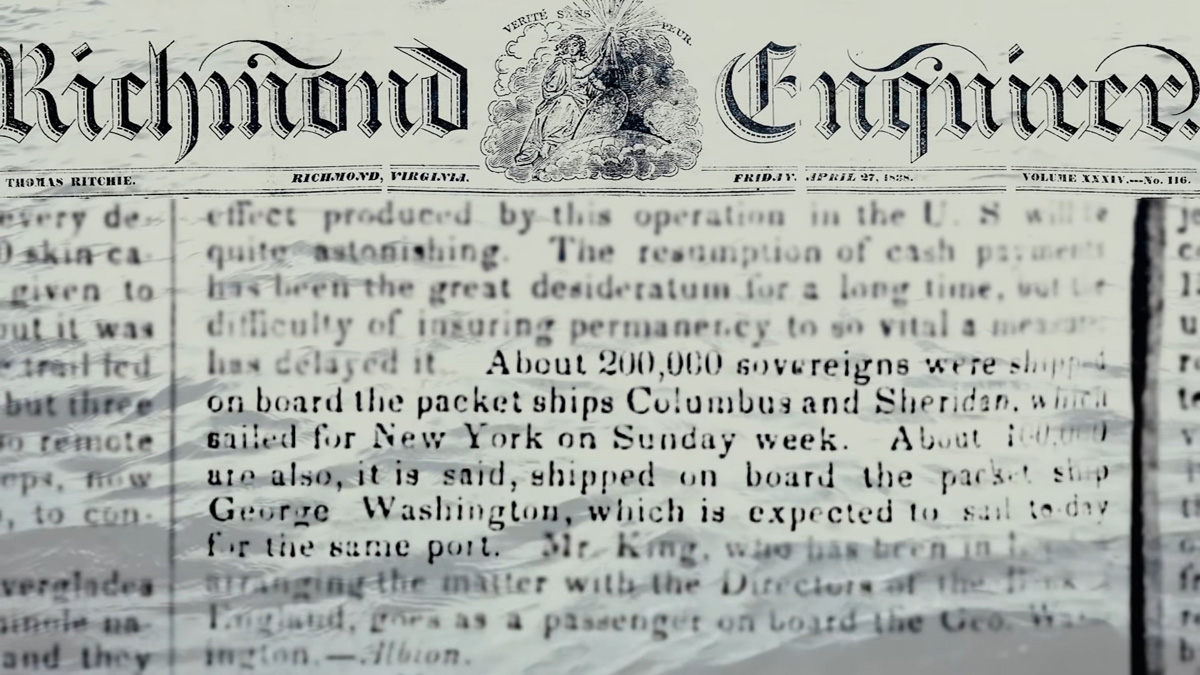 VERITÉ SANS PEUR.
Richmond Enquirer.
THOMAS RITCHIE. RICHMOND, VIRGINIA. FRIDAY, APRIL 27, 1838. VOLUME XXXIV.---No. 116.
every de-
0 skin ca-
given to
but it was
trail led
but three
so remote
now
to con-
verglades
na-
and they
effect produced by this operation in the U. S will be
quite astonishing. The resumption of cash payments
has been the great desideratum for a long time, but the
difficulty of insuring permanency to so vital a measure
has delayed it. About 200,000 sovereigns were shipped
on board the packet ships Columbus and Sheridan, which
sailed for New York on Sunday week. About 100,000
are also, it is said, shipped on board the packet ship
George Washington, which is expected to sail to-day
for the same port. Mr. King, who has been in
arranging the matter with the Directors of the Bank
England, goes as a passenger on board the Geo. Wash-
ington.—Albion.